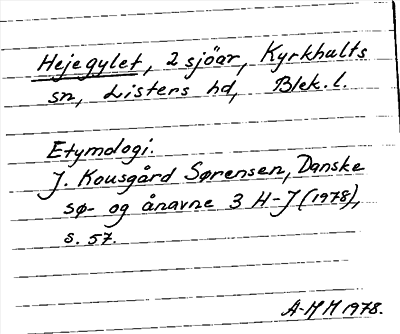 Hejegylet, 2 sjöar, Kyrkhults
sn, Listers hd, Blek. l.
Etymologi.
J. Kousgård Sørensen, Danske
sø- og ånavne 3 H-J (1978),
s. 57.
A-MM 1978.